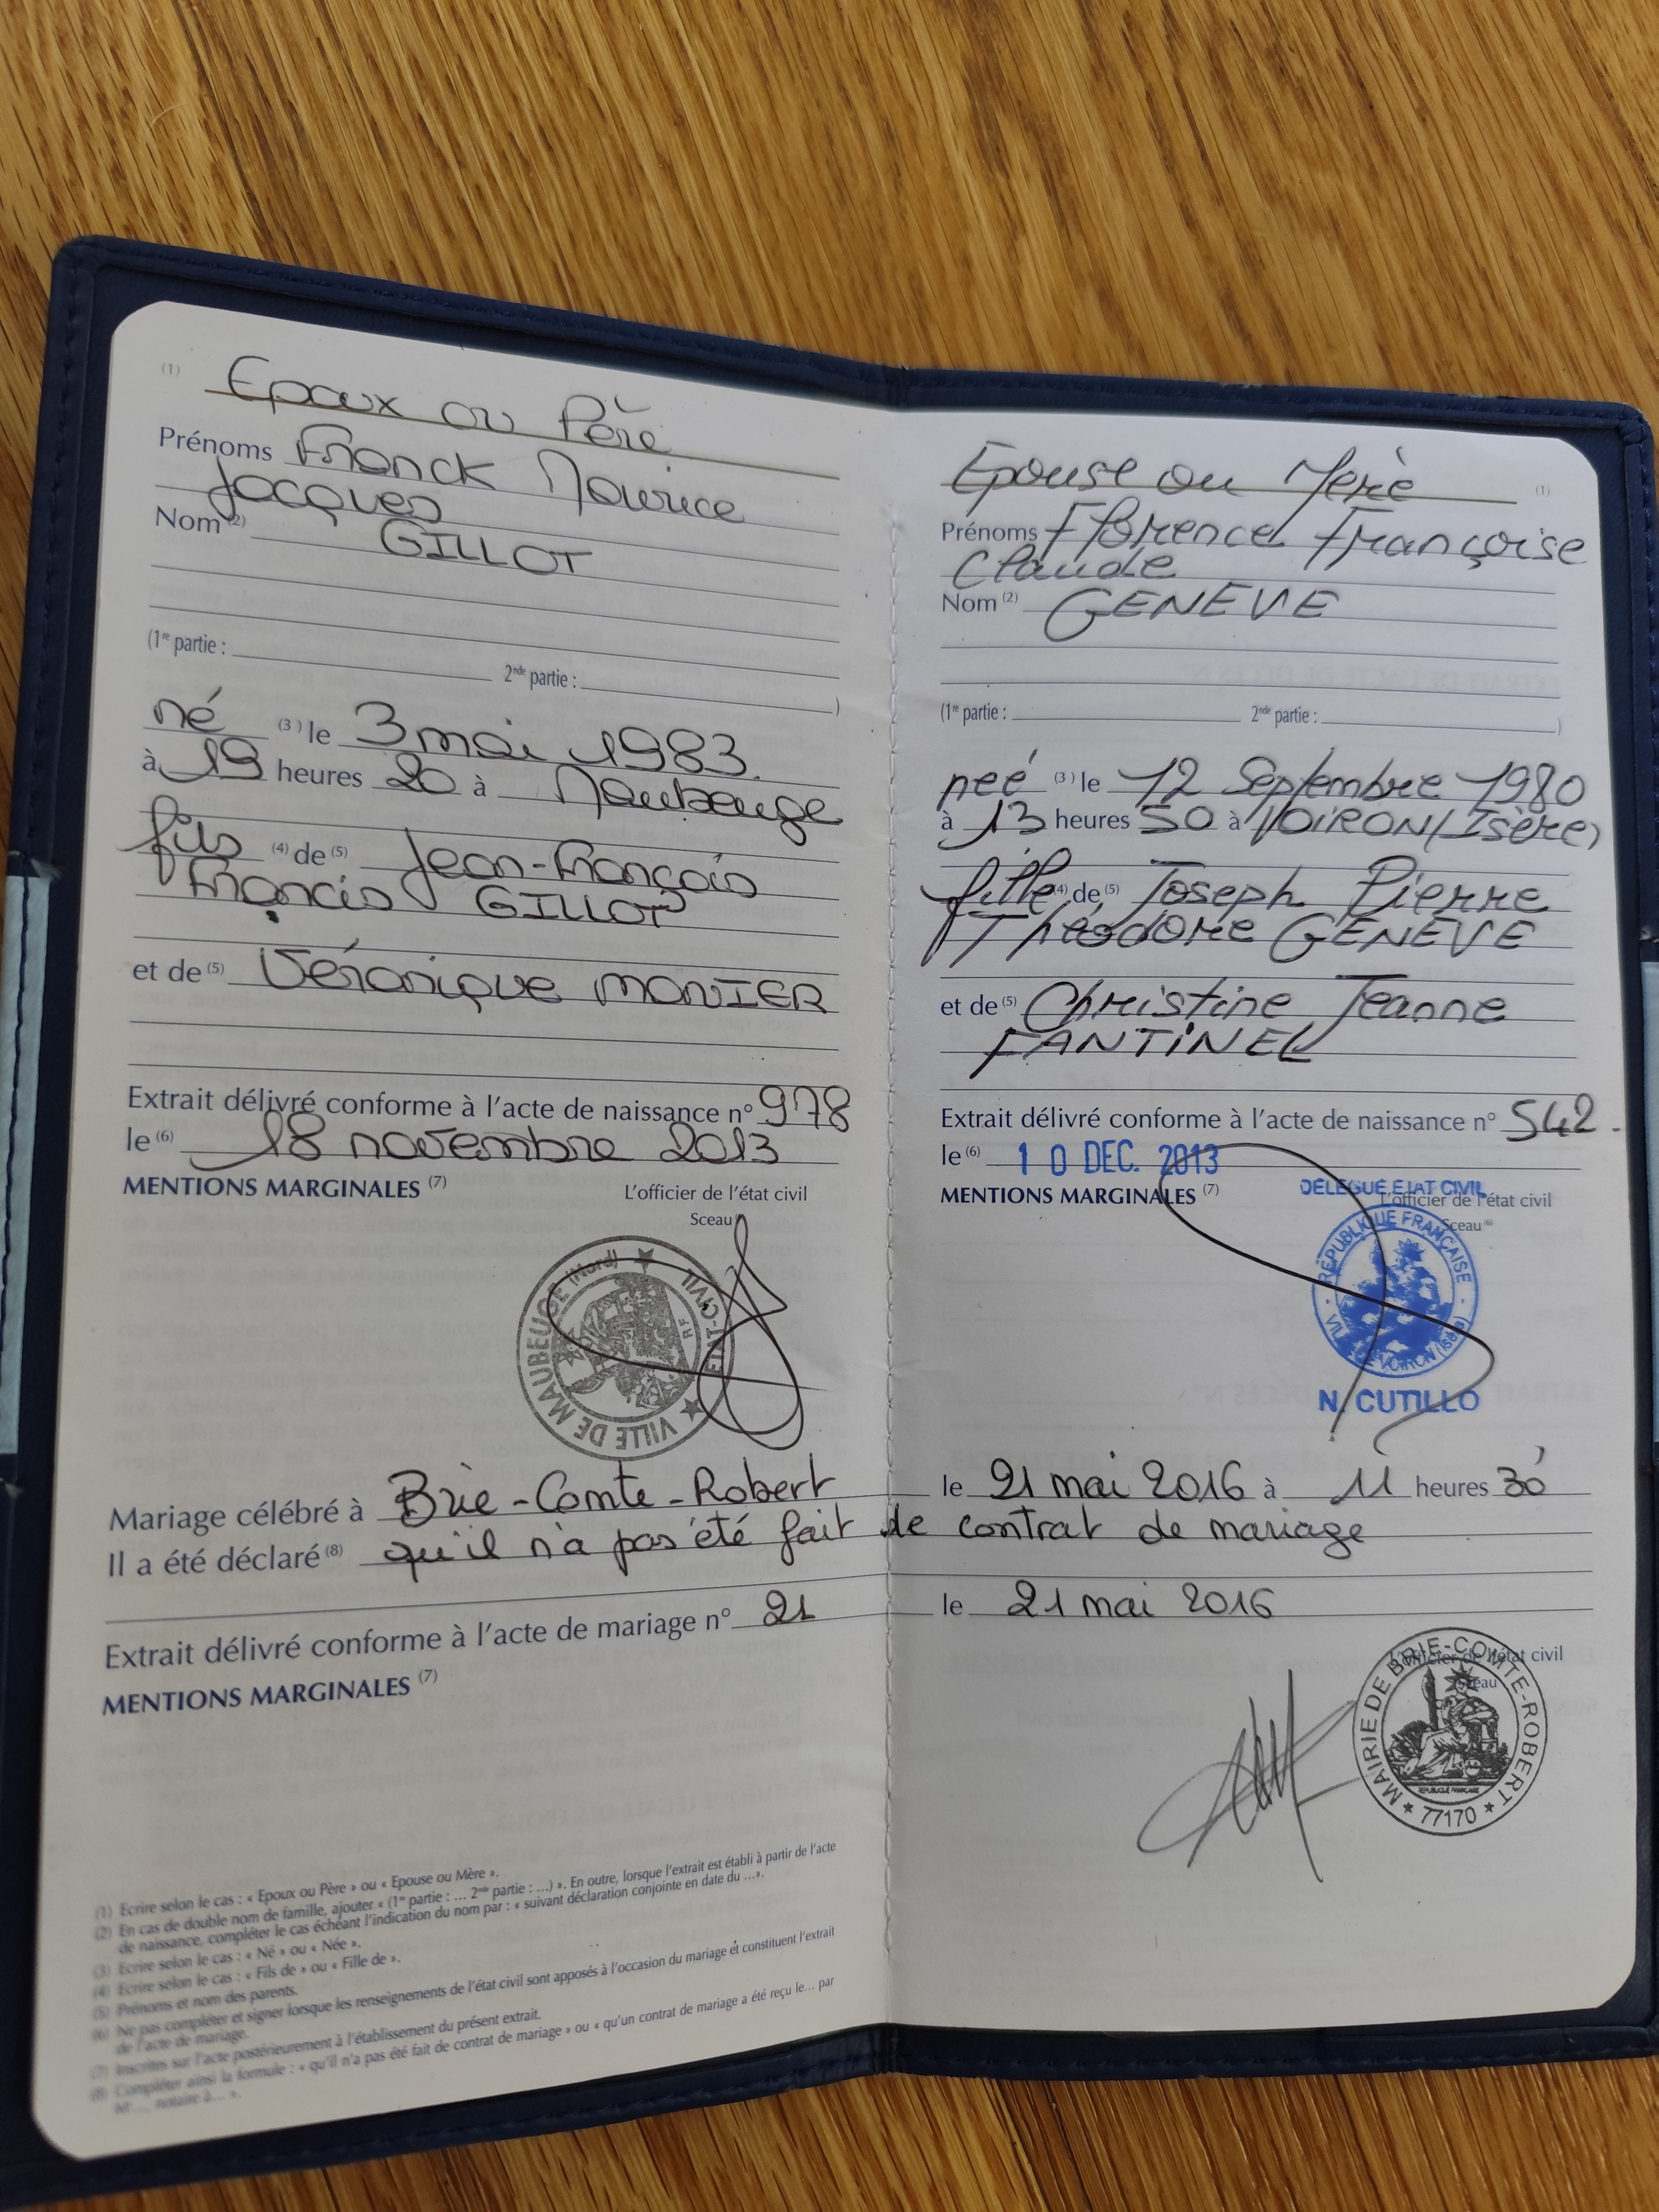 (1) Epoux ou Père
Prénoms Franck Maurice
Jacques
Nom (2) GILLOT
(1re partie : 2nde partie : )
né (3) le 3 mai 1983.
à 19 heures 20 à Maubeuge
fils (4) de (5) Jean-François
Francis GILLOT
et de (5) Véronique MONIER
Extrait délivré conforme à l'acte de naissance n° 978
le (6) 18 novembre 2013
MENTIONS MARGINALES (7)
L'officier de l'état civil
Sceau
VILLE DE MAUBEUGE (Nord) ★ ETAT-CIVIL ★
RF
Epouse ou Mère (1)
Prénoms Florence Françoise
Claude
Nom (2) GENEVE
(1re partie : 2nde partie : )
née (3) le 12 Septembre 1980
à 13 heures 50 à VOIRON (Isère)
fille (4) de (5) Joseph Pierre
Théodore GENEVE
et de (5) Christine Jeanne
FANTINEL
Extrait délivré conforme à l'acte de naissance n° 542.
le (6) 10 DEC. 2013
MENTIONS MARGINALES (7)
DELEGUE ETAT CIVIL
L'officier de l'état civil
Sceau (6)
RÉPUBLIQUE FRANÇAISE
VOIRON (Isère)
N. CUTILLO
Mariage célébré à Brie-Comte-Robert le 21 mai 2016 à 11 heures 30
Il a été déclaré (8) qu'il n'a pas été fait de contrat de mariage
Extrait délivré conforme à l'acte de mariage n° 21 le 21 mai 2016
MENTIONS MARGINALES (7)
L'officier de l'état civil
Sceau
MAIRIE DE BRIE-COMTE-ROBERT
REPUBLIQUE FRANÇAISE
★ 77170 ★
(1) Ecrire selon le cas : « Epoux ou Père » ou « Epouse ou Mère ».
(2) En cas de double nom de famille, ajouter « (1re partie : ... 2nde partie : ...) ». En outre, lorsque l'extrait est établi à partir de l'acte
de naissance, compléter le cas échéant l'indication du nom par : « suivant déclaration conjointe en date du ...».
(3) Ecrire selon le cas : « Né » ou « Née ».
(4) Ecrire selon le cas : « Fils de » ou « Fille de ».
(5) Prénoms et nom des parents.
(6) Ne pas compléter et signer lorsque les renseignements de l'état civil sont apposés à l'occasion du mariage et constituent l'extrait
de l'acte de mariage.
(7) Inscrites sur l'acte postérieurement à l'établissement du présent extrait.
(8) Compléter ainsi la formule : « qu'il n'a pas été fait de contrat de mariage » ou « qu'un contrat de mariage a été reçu le... par
Me..., notaire à... ».